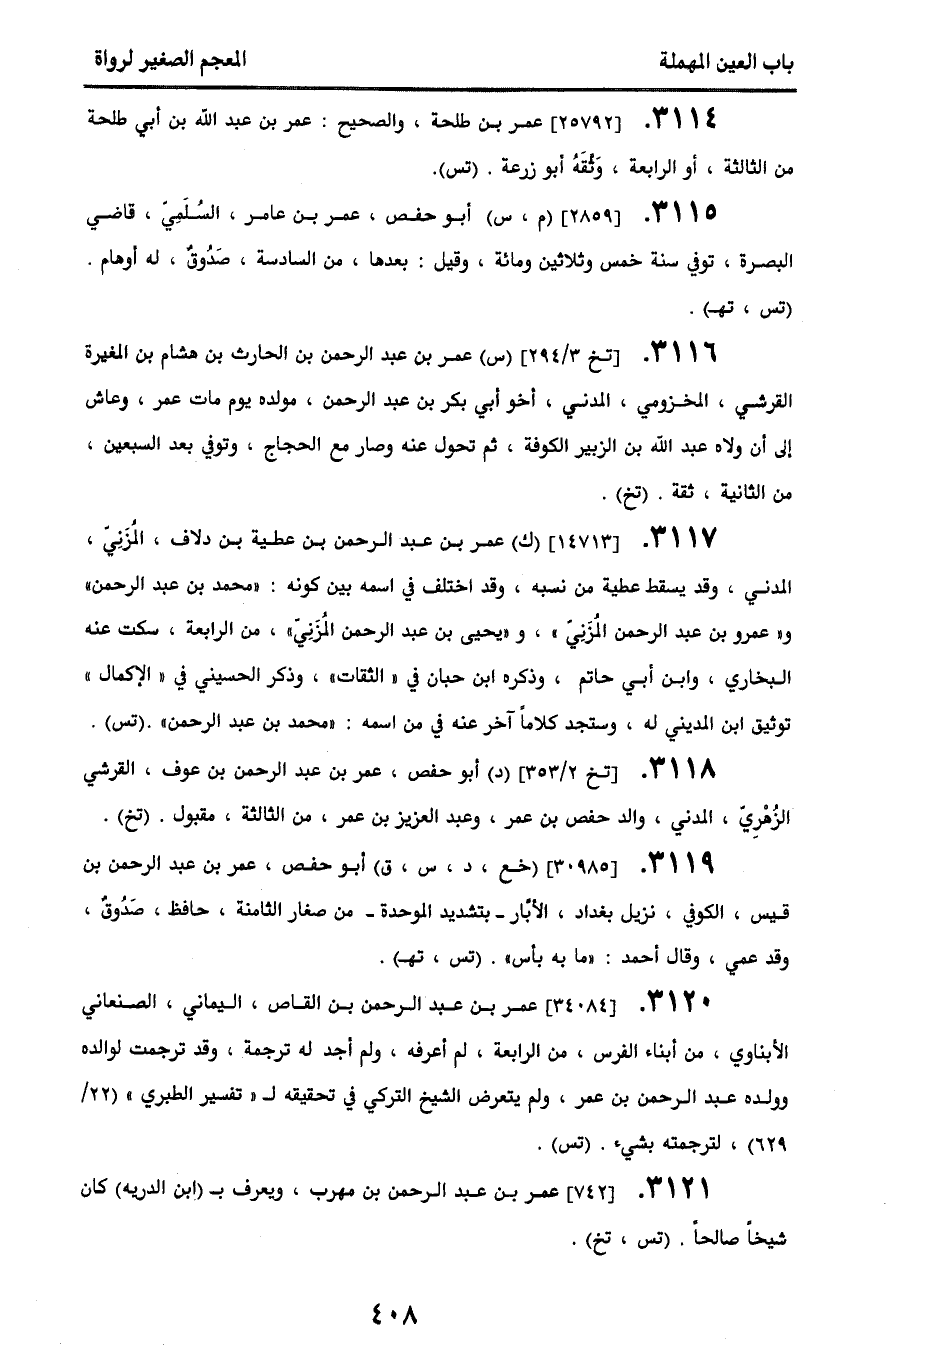 باب العين المهملة
المعجم الصغير لرواة
٣١١٤. [٢٥٧٩٢] عمر بن طلحة ، والصحيح : عمر بن عبد الله بن أبي طلحة
من الثالثة ، أو الرابعة ، وَثَّقَهُ أبو زرعة . (تس).
٣١١٥. [٢٨٥٩] (م ، س) أبو حفص ، عمر بن عامر ، السُّلَمِيّ ، قاضي
البصرة ، توفي سنة خمس وثلاثين ومائة ، وقيل : بعدها ، من السادسة ، صَدُوقٌ ، له أوهام .
(تس ، تهـ) .
٣١١٦. [تخ ٢٩٤/٣] (س) عمر بن عبد الرحمن بن الحارث بن هشام بن المغيرة
القرشي ، المخزومي ، المدني ، أخو أبي بكر بن عبد الرحمن ، مولده يوم مات عمر ، وعاش
إلى أن ولاه عبد الله بن الزبير الكوفة ، ثم تحول عنه وصار مع الحجاج ، وتوفي بعد السبعين ،
من الثانية ، ثقة . (تخ) .
٣١١٧. [١٤٧١٣] (ك) عمر بن عبد الرحمن بن عطية بن دلاف ، المُزَنِيّ ،
المدني ، وقد يسقط عطية من نسبه ، وقد اختلف في اسمه بين كونه : «محمد بن عبد الرحمن»
و« عمرو بن عبد الرحمن المُزَنِيّ » ، و «يحيى بن عبد الرحمن المُزَنِيّ» ، من الرابعة ، سكت عنه
البخاري ، وابن أبي حاتم ، وذكره ابن حبان في « الثقات» ، وذكر الحسيني في « الإكمال »
توثيق ابن المديني له ، وستجد كلاماً آخر عنه في من اسمه : «محمد بن عبد الرحمن» .(تس) .
٣١١٨. [تخ ٣٥٣/٢] (د) أبو حفص ، عمر بن عبد الرحمن بن عوف ، القرشي
الزُهْرِيّ ، المدني ، والد حفص بن عمر ، وعبد العزيز بن عمر ، من الثالثة ، مقبول . (تخ) .
٣١١٩. [٣٠٩٨٥] (خع ، د ، س ، ق) أبو حفص ، عمر بن عبد الرحمن بن
قيس ، الكوفي ، نزيل بغداد ، الأبَّار ـ بتشديد الموحدة ـ من صغار الثامنة ، حافظ ، صَدُوقٌ ،
وقد عمي ، وقال أحمد : «ما به بأس» . (تس ، تهـ) .
٣١٢٠. [٣٤٠٨٤] عمر بن عبد الرحمن بن القاص ، اليماني ، الصنعاني
الأبناوي ، من أبناء الفرس ، من الرابعة ، لم أعرفه ، ولم أجد له ترجمة ، وقد ترجمت لوالده
وولده عبد الرحمن بن عمر ، ولم يتعرض الشيخ التركي في تحقيقه لـ « تفسير الطبري » (٢٢/
٦٢٩) ، لترجمته بشيء . (تس) .
٣١٢١. [٧٤٢] عمر بن عبد الرحمن بن مهرب ، ويعرف بـ (ابن الدريه) كان
شيخاً صالحاً . (تس ، تخ) .
٤٠٨